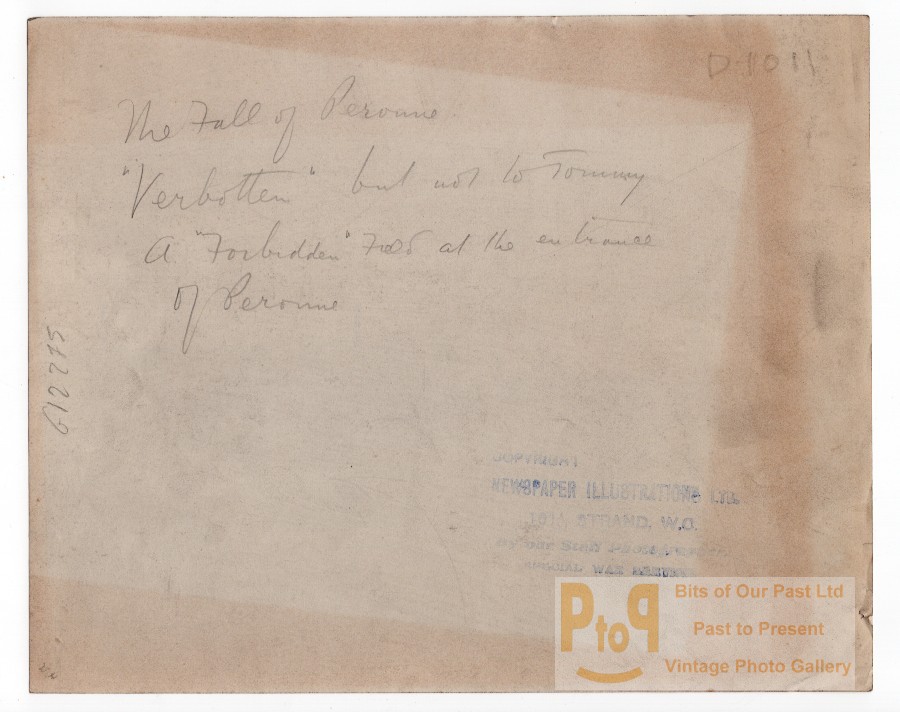 D 1011
The Fall of Peronne.
"Verbotten" but not to Tommy
A "Forbidden" Field at the entrance
of Peronne
COPYRIGHT
NEWSPAPER ILLUSTRATIONS LTD.
STRAND, W.C.
By our Staff
WAR
PtoP
Bits of Our Past Ltd
Past to Present
Vintage Photo Gallery